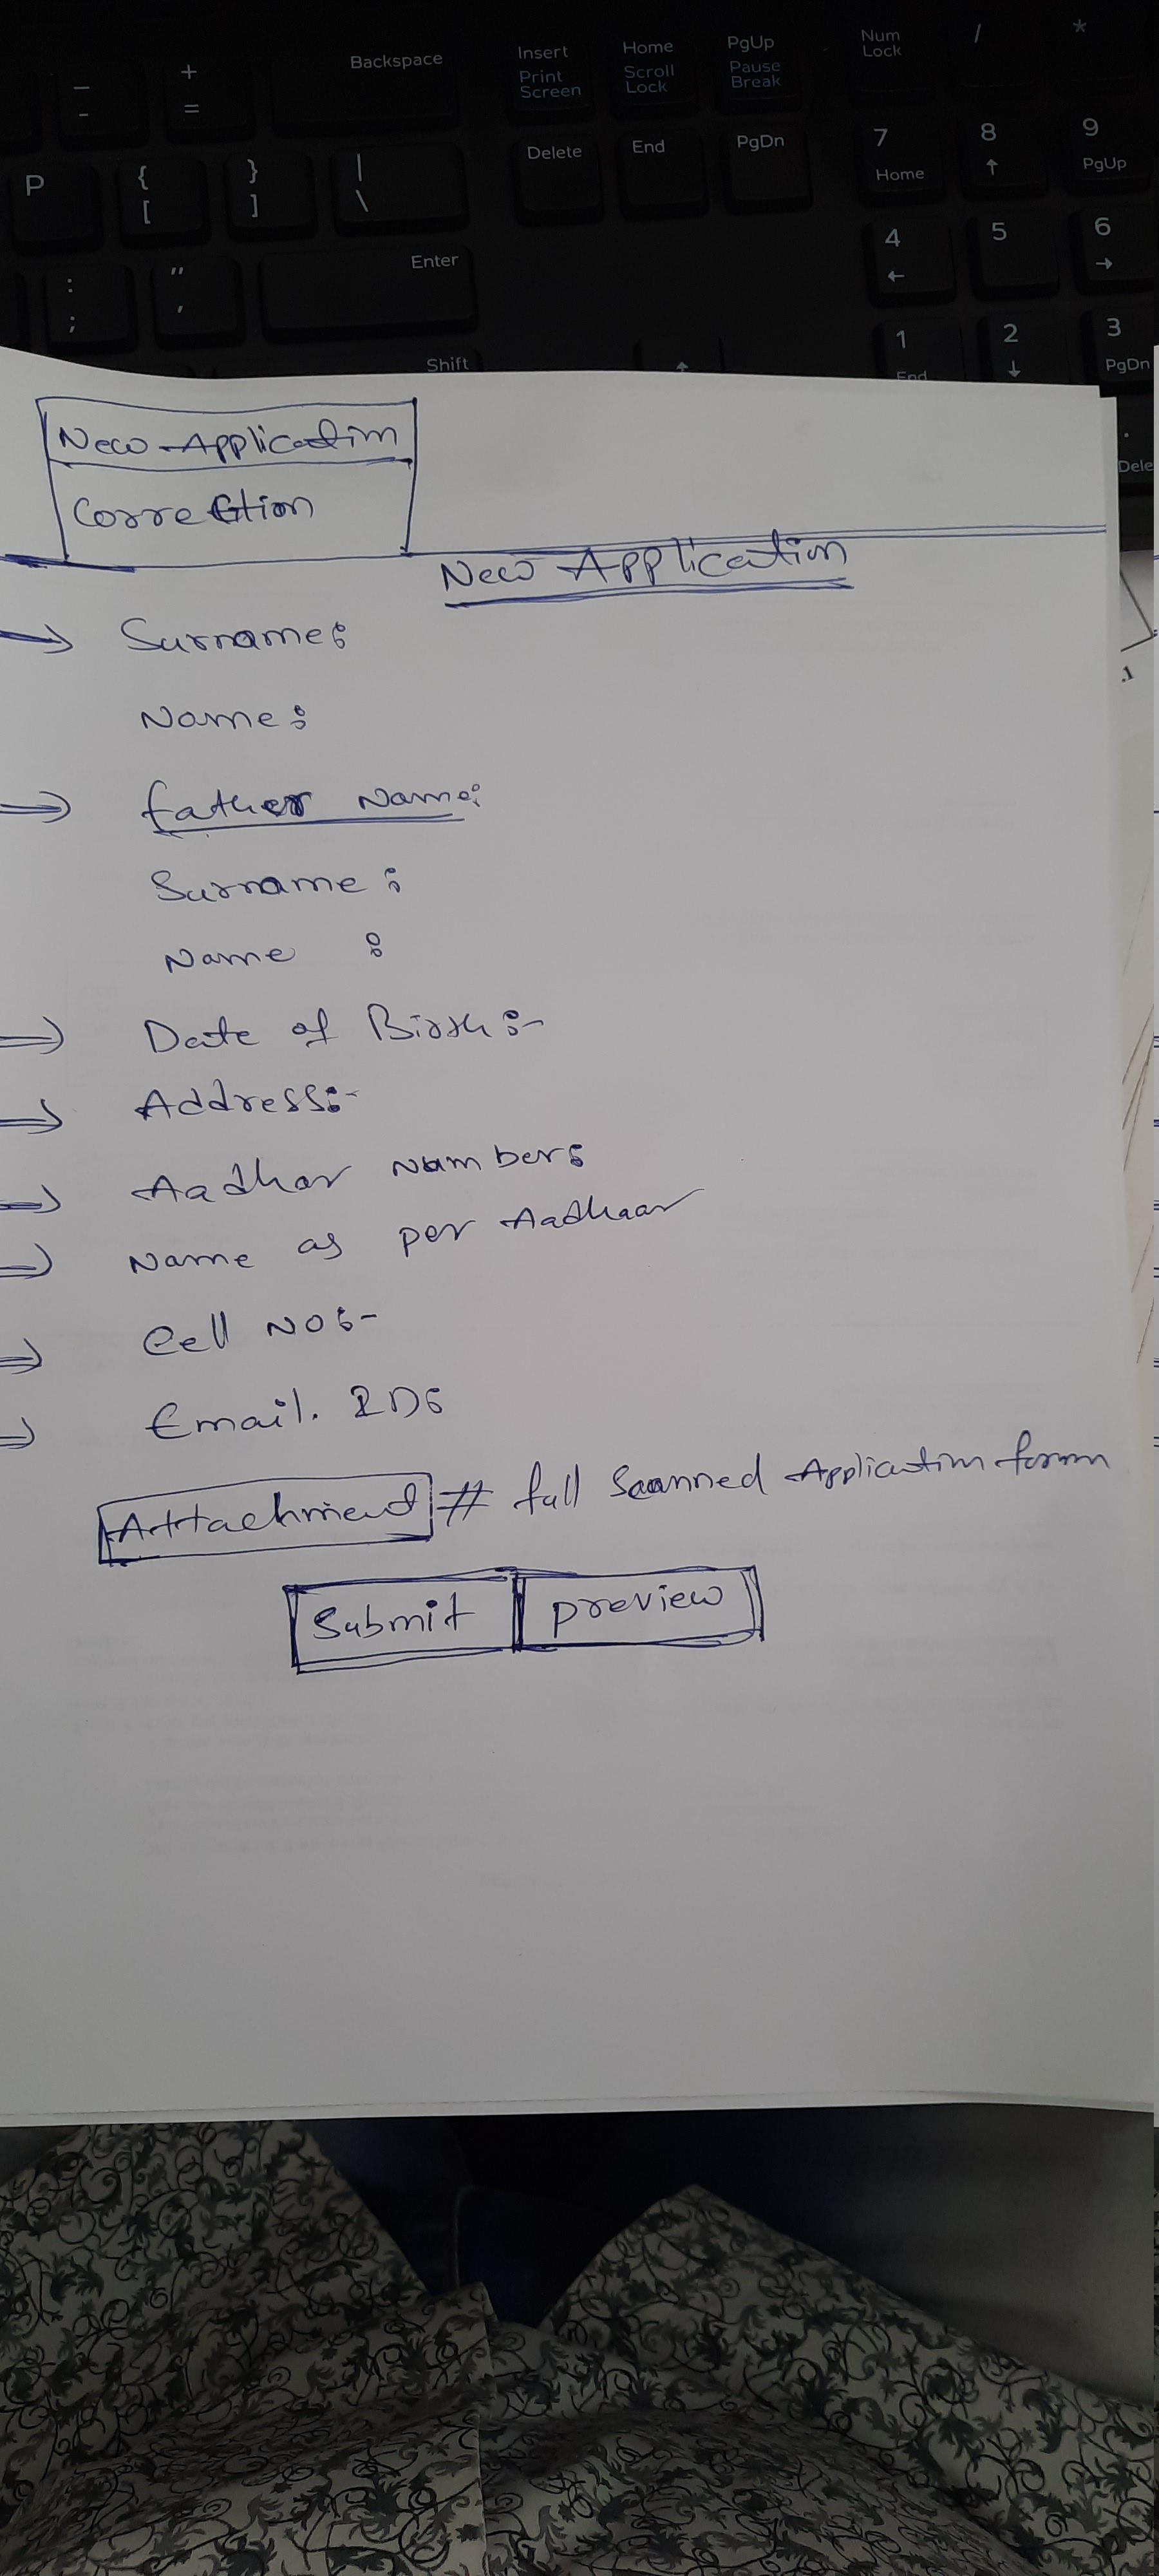 Backspace
Insert
Print Screen
Home
Scroll Lock
PgUp
Pause Break
Num Lock
/
*
-
+
=
P
{
[
}
]
|
\
Delete
End
PgDn
7
Home
8
↑
9
PgUp
:
;
"
'
Enter
4
←
5
6
→
Shift
1
End
2
↓
3
PgDn
.
Dele
New Application
Correction
New Application
⇒ Surname:
Name:
⇒ father Name:
Surname :
Name :
⇒ Date of Birth :-
⇒ Address:-
⇒ Aadhar Number:
⇒ Name as per Aadhaar
⇒ Cell NO:-
⇒ Email. ID:
Attachment # full Scanned Application form
Submit preview
.1